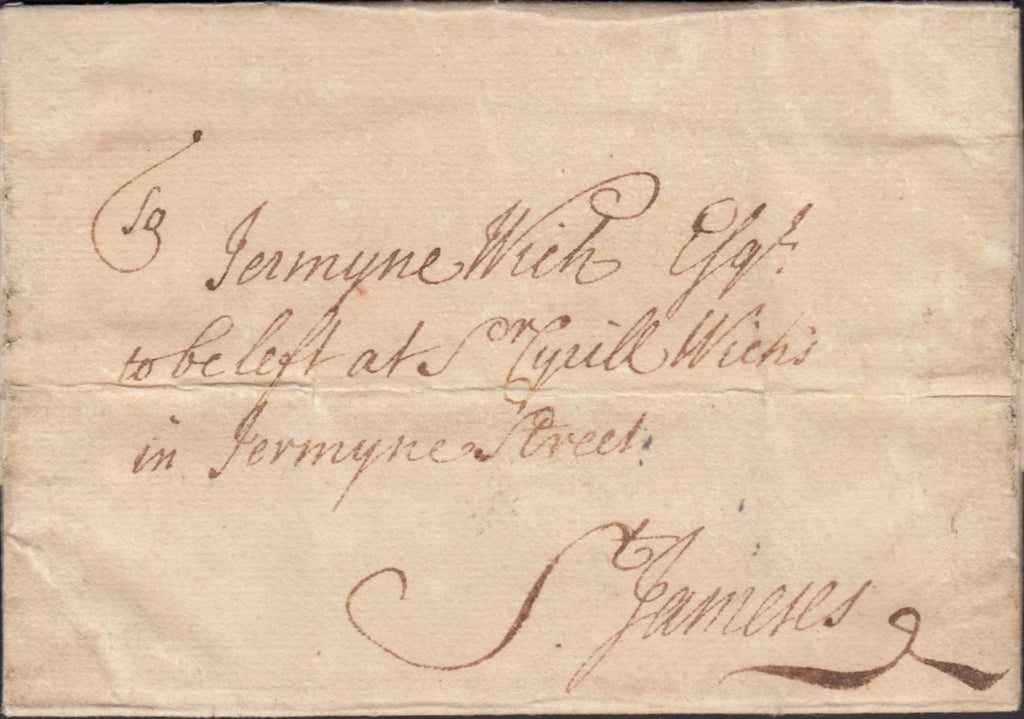 Jermyne Wich Esqr.
to be left at Sr Cyrill Wichs
in Jermyne Street
St Jameses